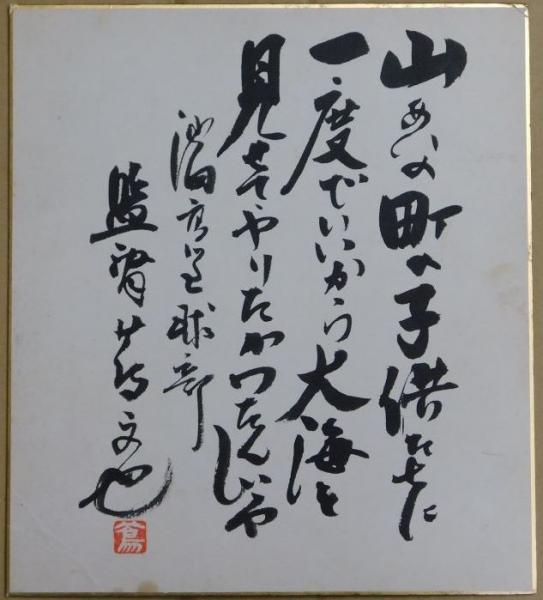 山あいの町の子供たちに
一度でいいから大海を
見せてやりたかったんじゃ
池田高校野球部
監督 蔦文也
蔦